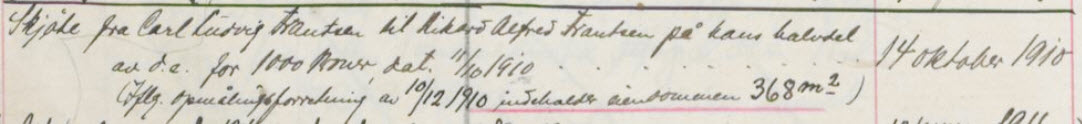 Skjøte fra Carl Ludvig Frantsen til Rikard Alfred Frantsen på hans halvdel
av d.e. for 1000 Kroner, dat. 11/10 1910 . . . . . . . . . . 14 oktober 1910
(Iflg. opmålingsforretning av 10/12 1910 indeholder eiendommen 368 m²)